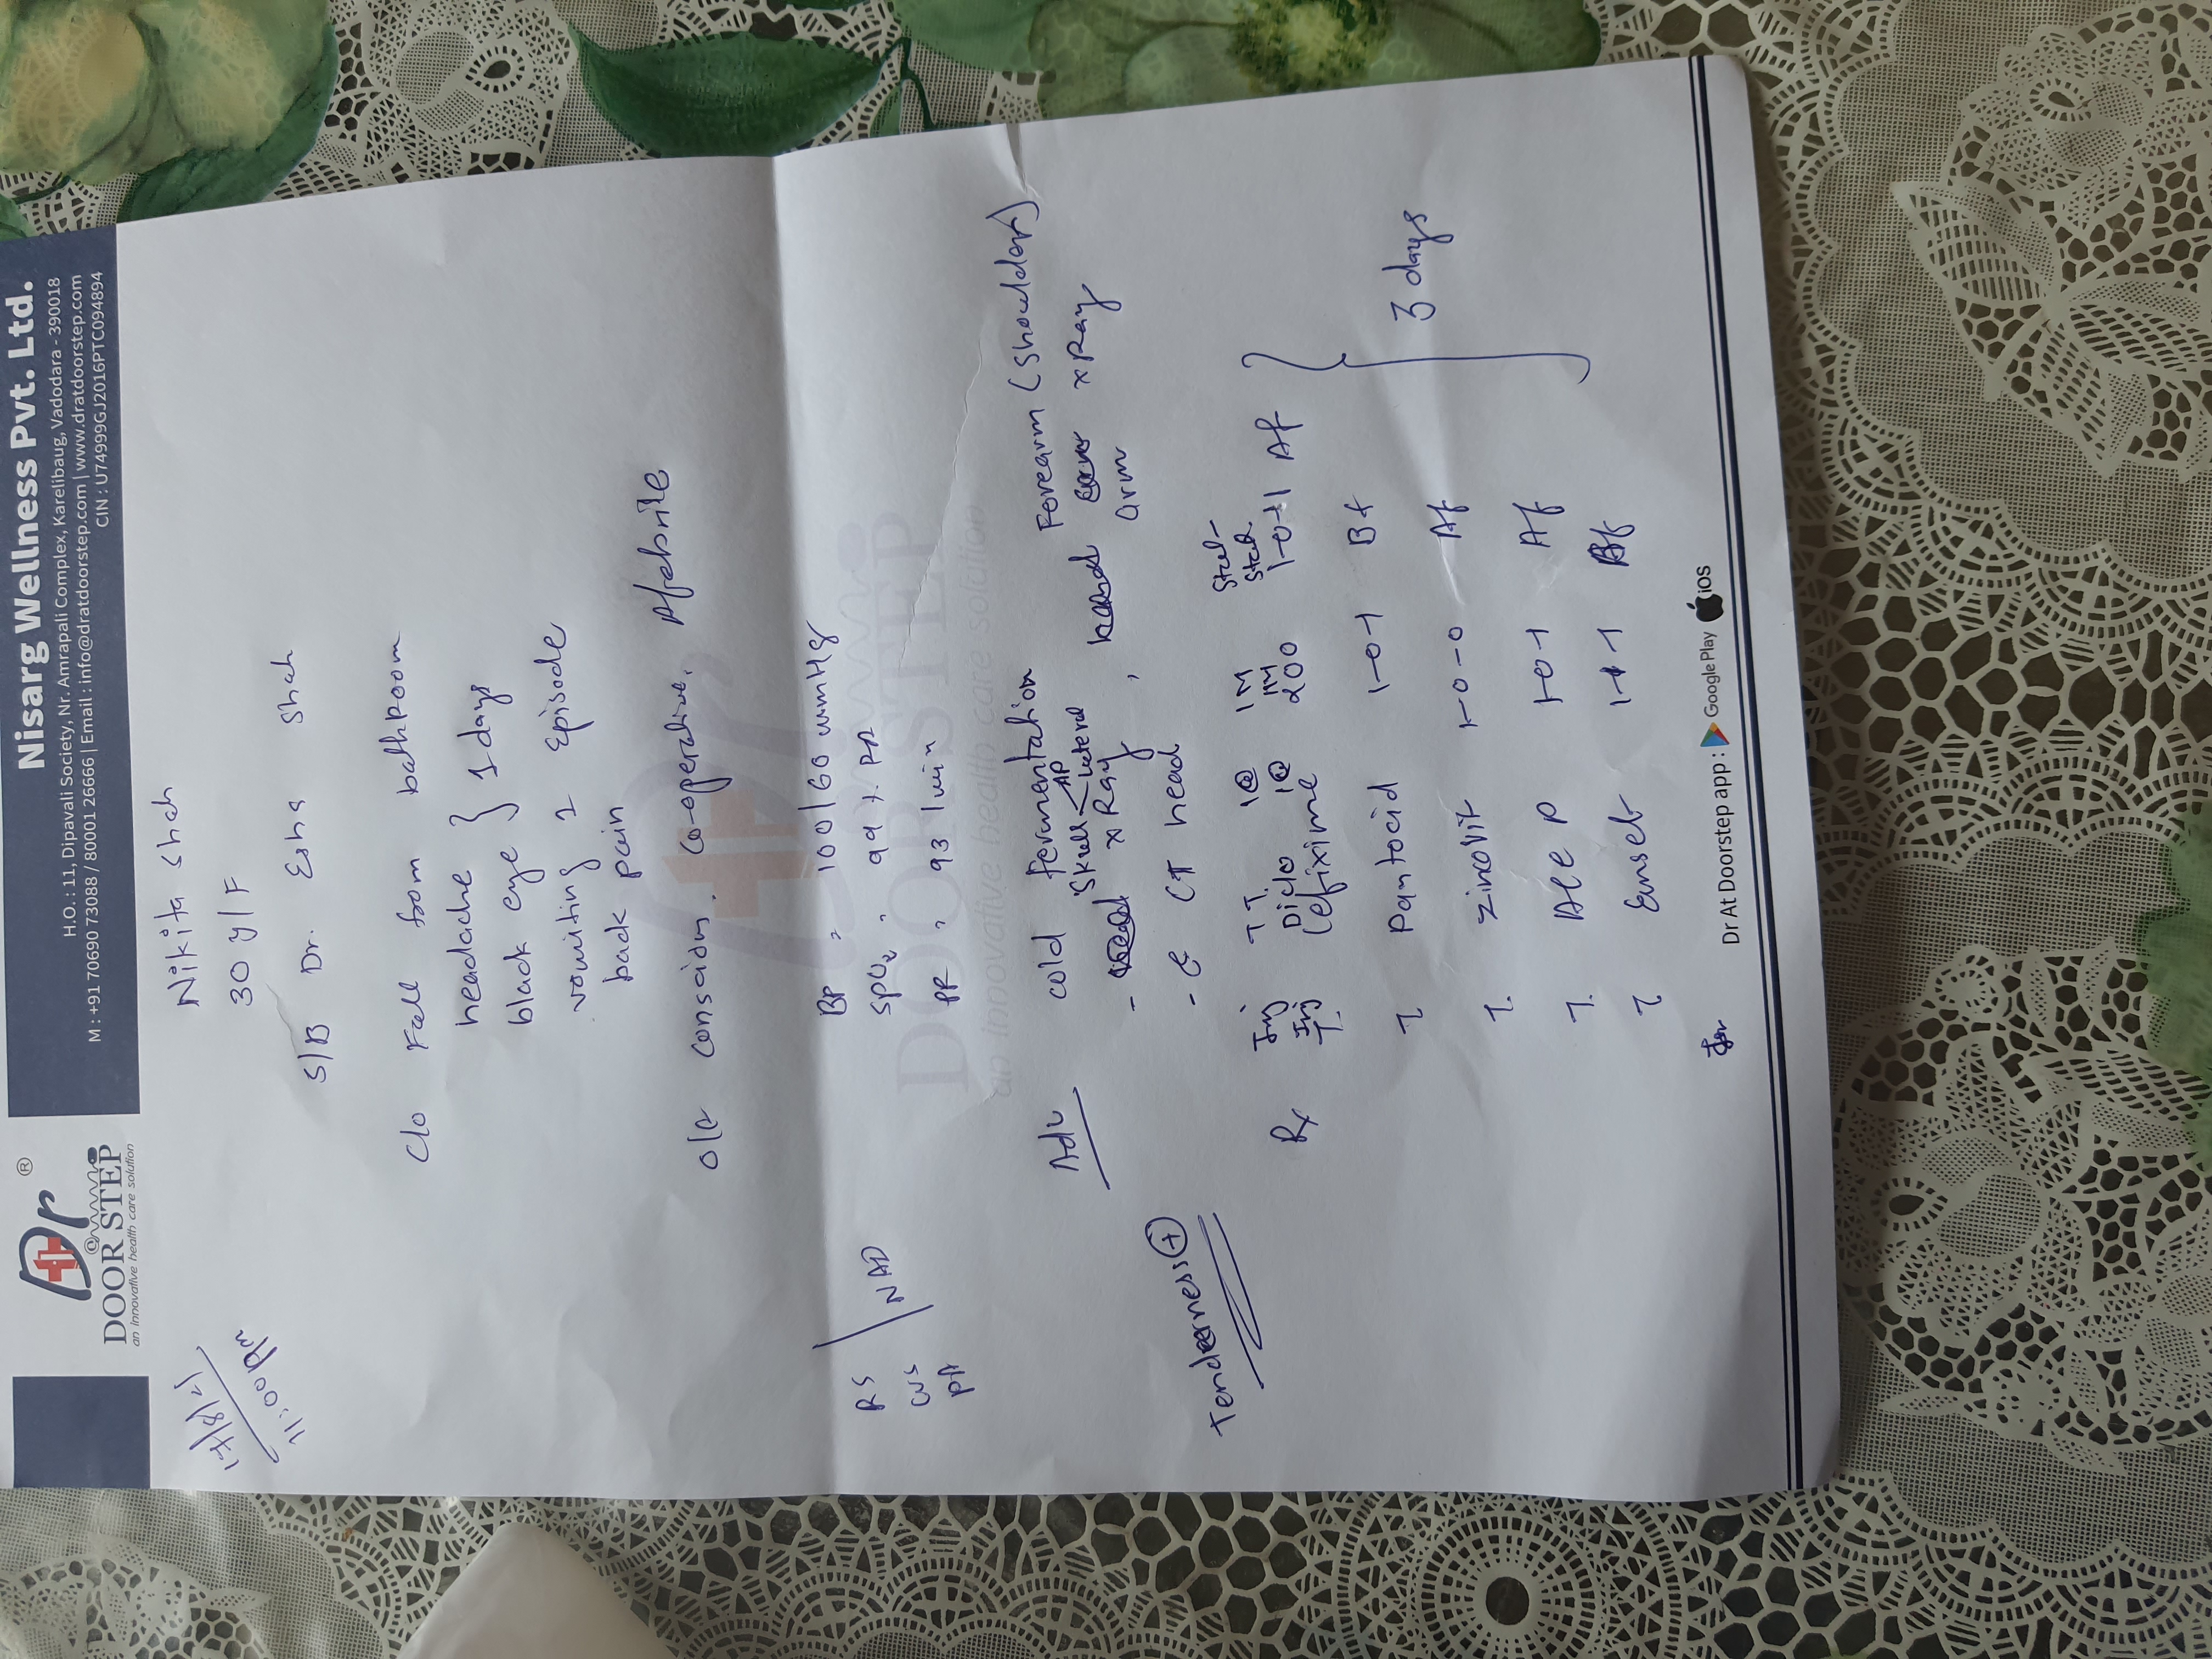 Dr ®
@
DOOR STEP
an innovative health care solution
Nisarg Wellness Pvt. Ltd.
H.O. : 11, Dipavali Society, Nr. Amrapali Complex, Karelibaug, Vadodara - 390018
M : +91 70690 73088 / 80001 26666 | Email : info@dratdoorstep.com | www.dratdoorstep.com
CIN : U74999GJ2016PTC094894
17/8/21
11:00 pm
Nikita Shah
30 y/F
S/B Dr. Esha Shah
C/o Fall from bathroom
headache
black eye } 1 days
vomiting 1 Episode
back pain
o/e conscious. co-operative. Afebrile
RS
CVS
PA
NAD
BP = 100/60 mmHg
SPO2 = 99 % RA
PR = 93 /min
DOOR STEP
an innovative health care solution
Adv cold fermentation
Skull < AP Lateral
- x Ray , Forearm (Shoulder) x Ray
arm
- CT head
Tenderness +
Rx Inj TT. 1@ IM Stat
Inj Diclo 1@ IM Stat
T. Cefixime 200 1-0-1 Af
T Pantocid 1-0-1 Bf
T. Zincovit 1-0-0 Af
T. Ace P 1-0-1 Af
T Emset 1-1-1 Bf
} 3 days
Dr At Doorstep app : Google Play iOS